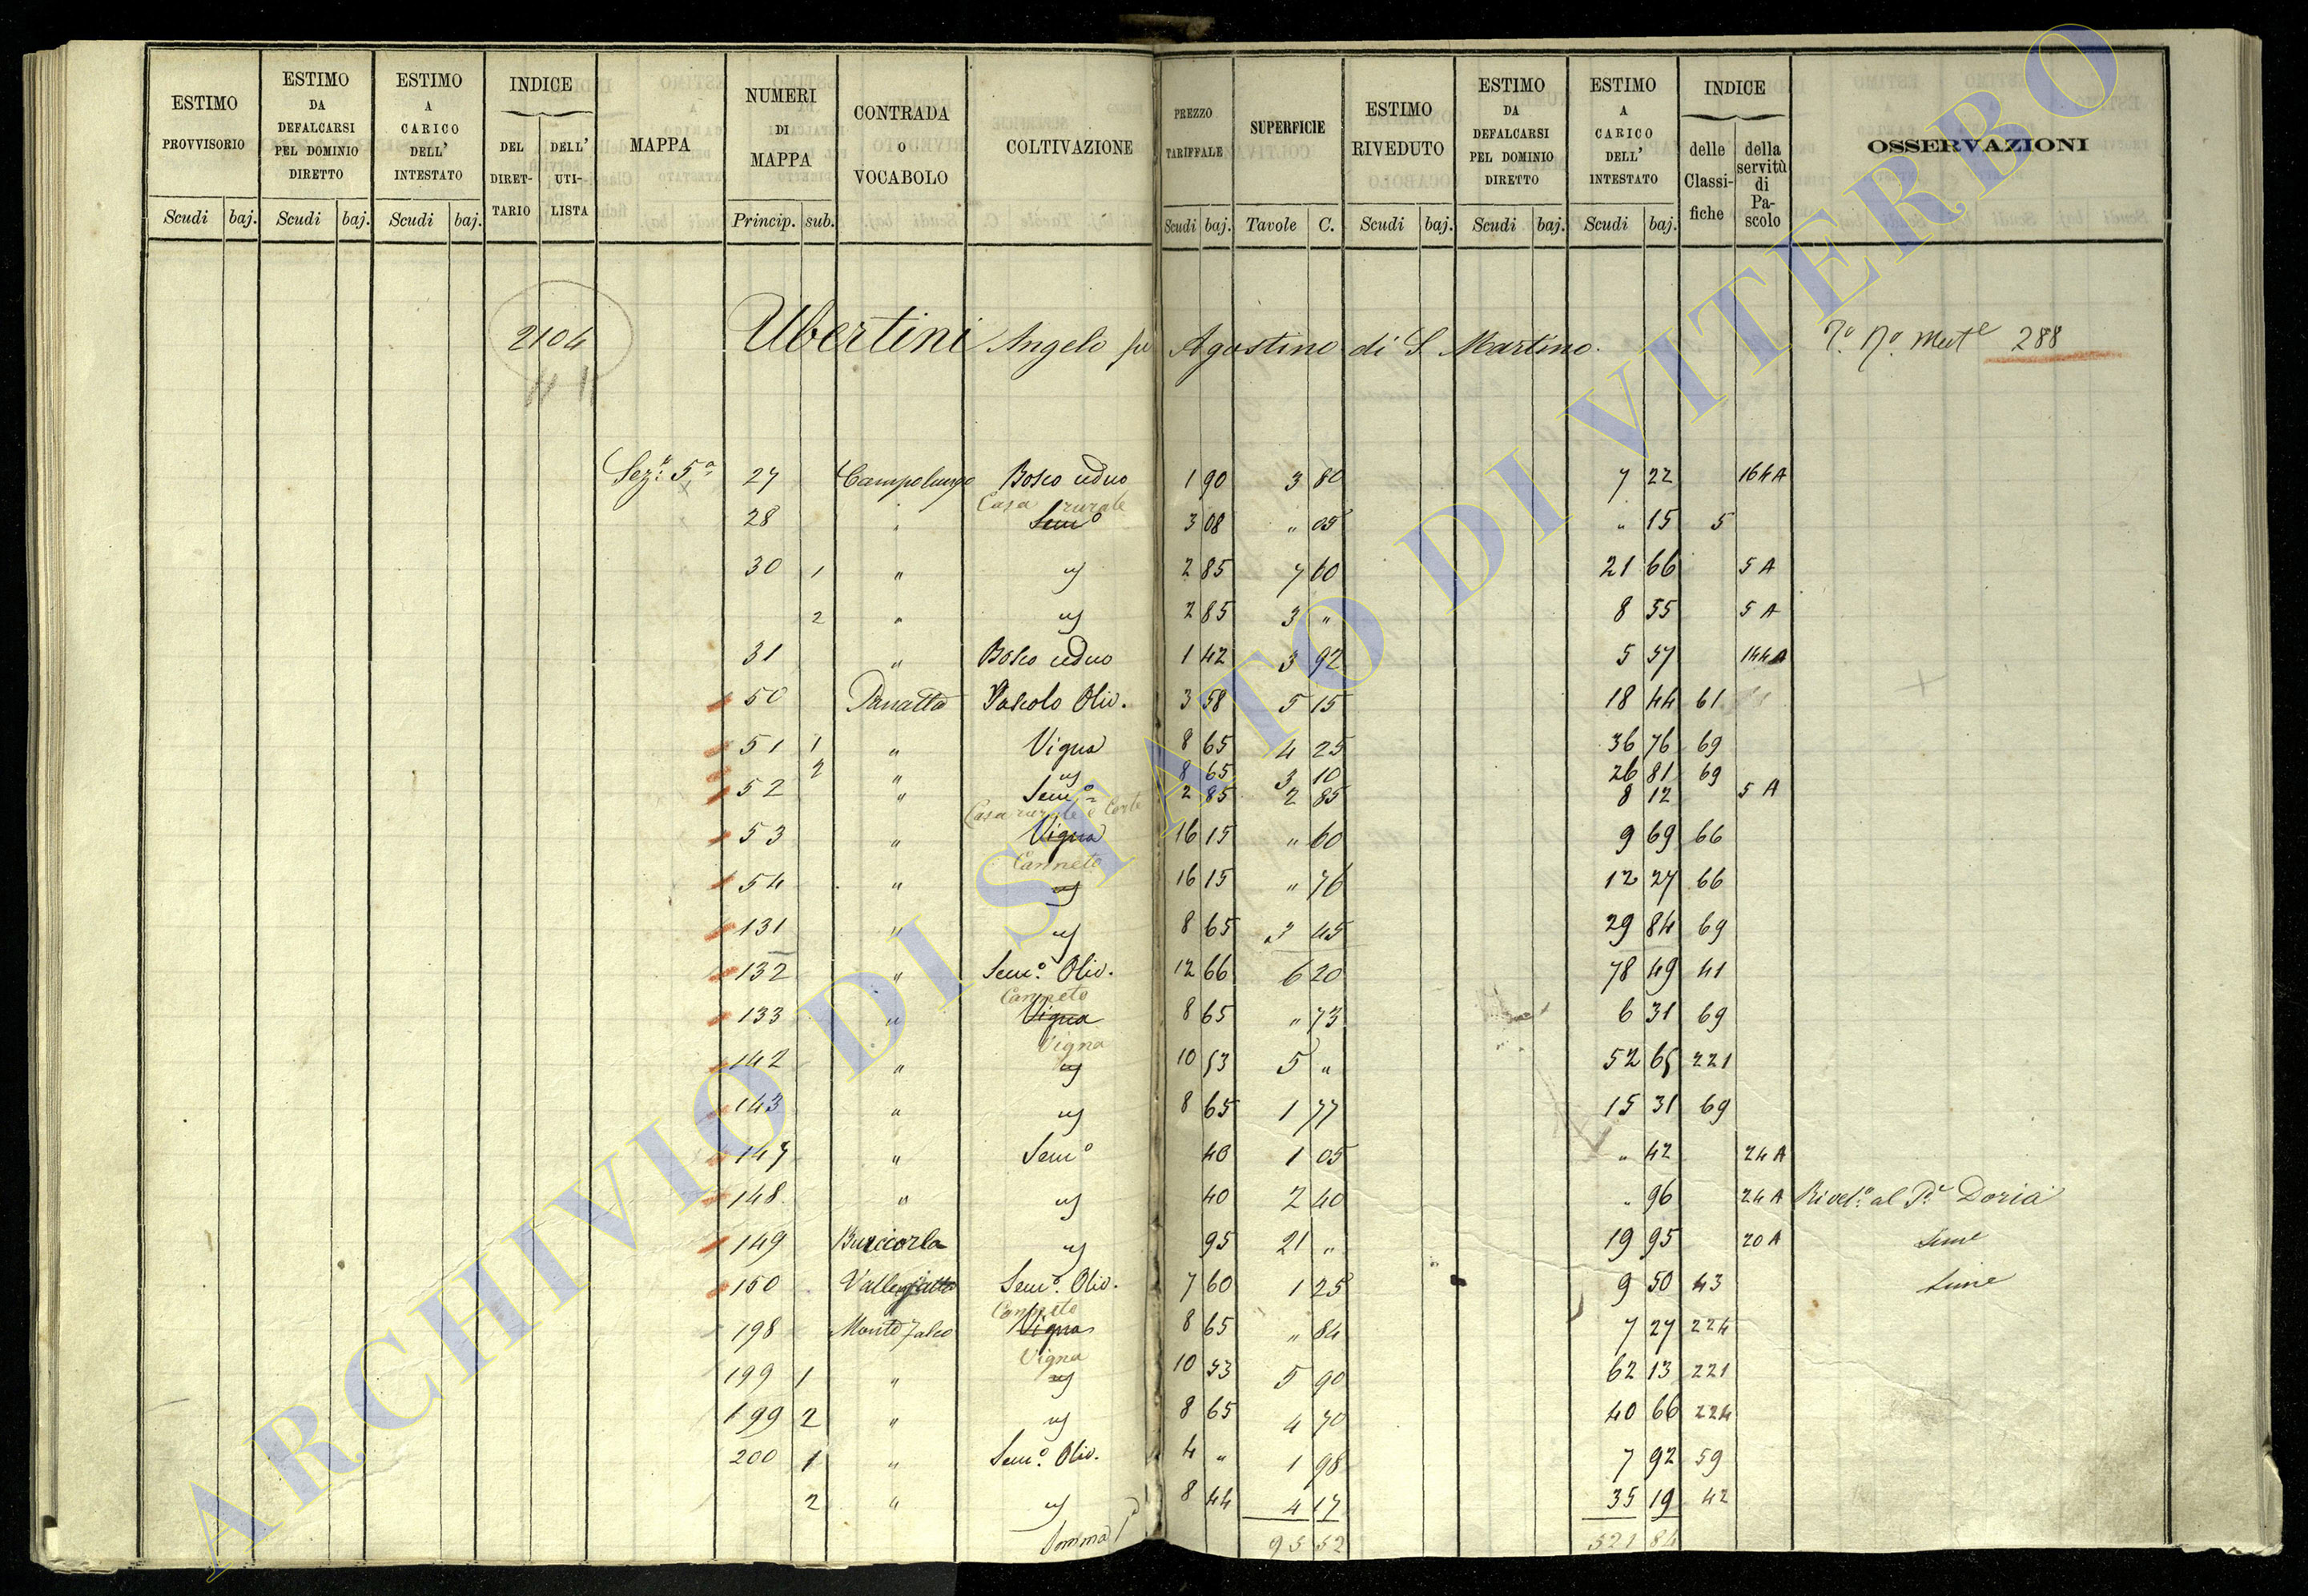 ESTIMO PROVVISORIO Scudi baj. | ESTIMO DA DEFALCARSI PEL DOMINIO DIRETTO Scudi baj. | ESTIMO A CARICO DELL' INTESTATO Scudi baj. | INDICE DEL DIRET-TARIO DELL' UTI-LISTA | MAPPA | NUMERI DI MAPPA Princip. sub. | CONTRADA O VOCABOLO | COLTIVAZIONE | PREZZO TARIFFALE Scudi baj. | SUPERFICIE Tavole C. | ESTIMO RIVEDUTO Scudi baj. | ESTIMO DA DEFALCARSI PEL DOMINIO DIRETTO Scudi baj. | ESTIMO A CARICO DELL' INTESTATO Scudi baj. | INDICE delle Classi-fiche della servitù di Pa-scolo | OSSERVAZIONI
2104 Ubertini Angelo fu Agostino di S. Martino. 288
Sez.e 5a 27 Campolungo Bosco ceduo 1 90 3 80 7 22 164 A
Casa rurale
28 " Sem.o 3 08 " 05 " 15 5
30 1 " " 2 85 7 60 21 66 5 A
2 " " 2 85 3 " 8 55 5 A
31 " Bosco ceduo 1 42 3 92 5 57 144 A
50 Panatta Pascolo Oliv. 3 58 5 15 18 44 61
51 1 " Vigna 8 65 4 25 36 76 69
2 " " 8 65 3 10 26 81 69
52 " Sem.o 2 85 2 85 8 12 5 A
Casa rurale e Corte
53 " Vigna 16 15 " 60 9 69 66
Canneto
54 " " 16 15 " 76 12 27 66
131 " " 8 65 3 45 29 84 69
132 " Sem.o Oliv. 12 66 6 20 78 49 41
Canneto
133 " Vigna 8 65 " 73 6 31 69
Vigna
142 " " 10 53 5 " 52 65 221
143 " " 8 65 1 77 15 31 69
147 " Sem.o 40 1 05 " 42 24 A
148 " " 40 2 40 " 96 24 A al P.e Doria
149 " 95 21 " 19 95 20 A
150 Sem.o Oliv. 7 60 1 25 9 50 43
Canneto
198 Monte Falco Vigna 8 65 " 84 7 27 224
Vigna
199 1 " " 10 53 5 90 62 13 221
199 2 " " 8 65 4 70 40 66 224
200 1 " Sem.o Oliv. 4 " 1 98 7 92 59
2 " " 8 44 4 17 35 19 42
Somma 95 52 521 84
ARCHIVIO DI STATO DI VITERBO